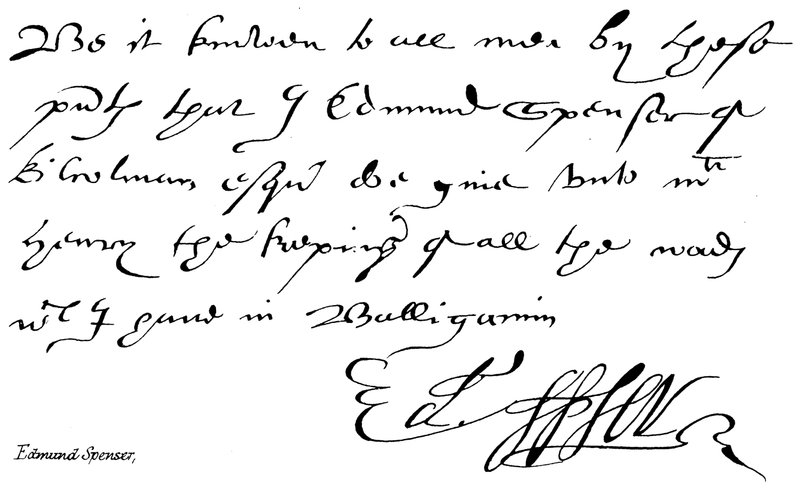 Be it knowen to all men by these
pñts that I Edmund Spenser of
Kilcolman esqr doe giue vnto mr
Henry the keping of all the woods
wch I haue in Balliganin
Ed. Spser
Edmund Spenser.